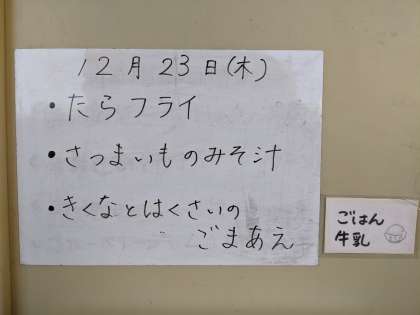 12月23日(木)
・たらフライ
・さつまいものみそ汁
・きくなとはくさいの
ごまあえ
ごはん
牛乳